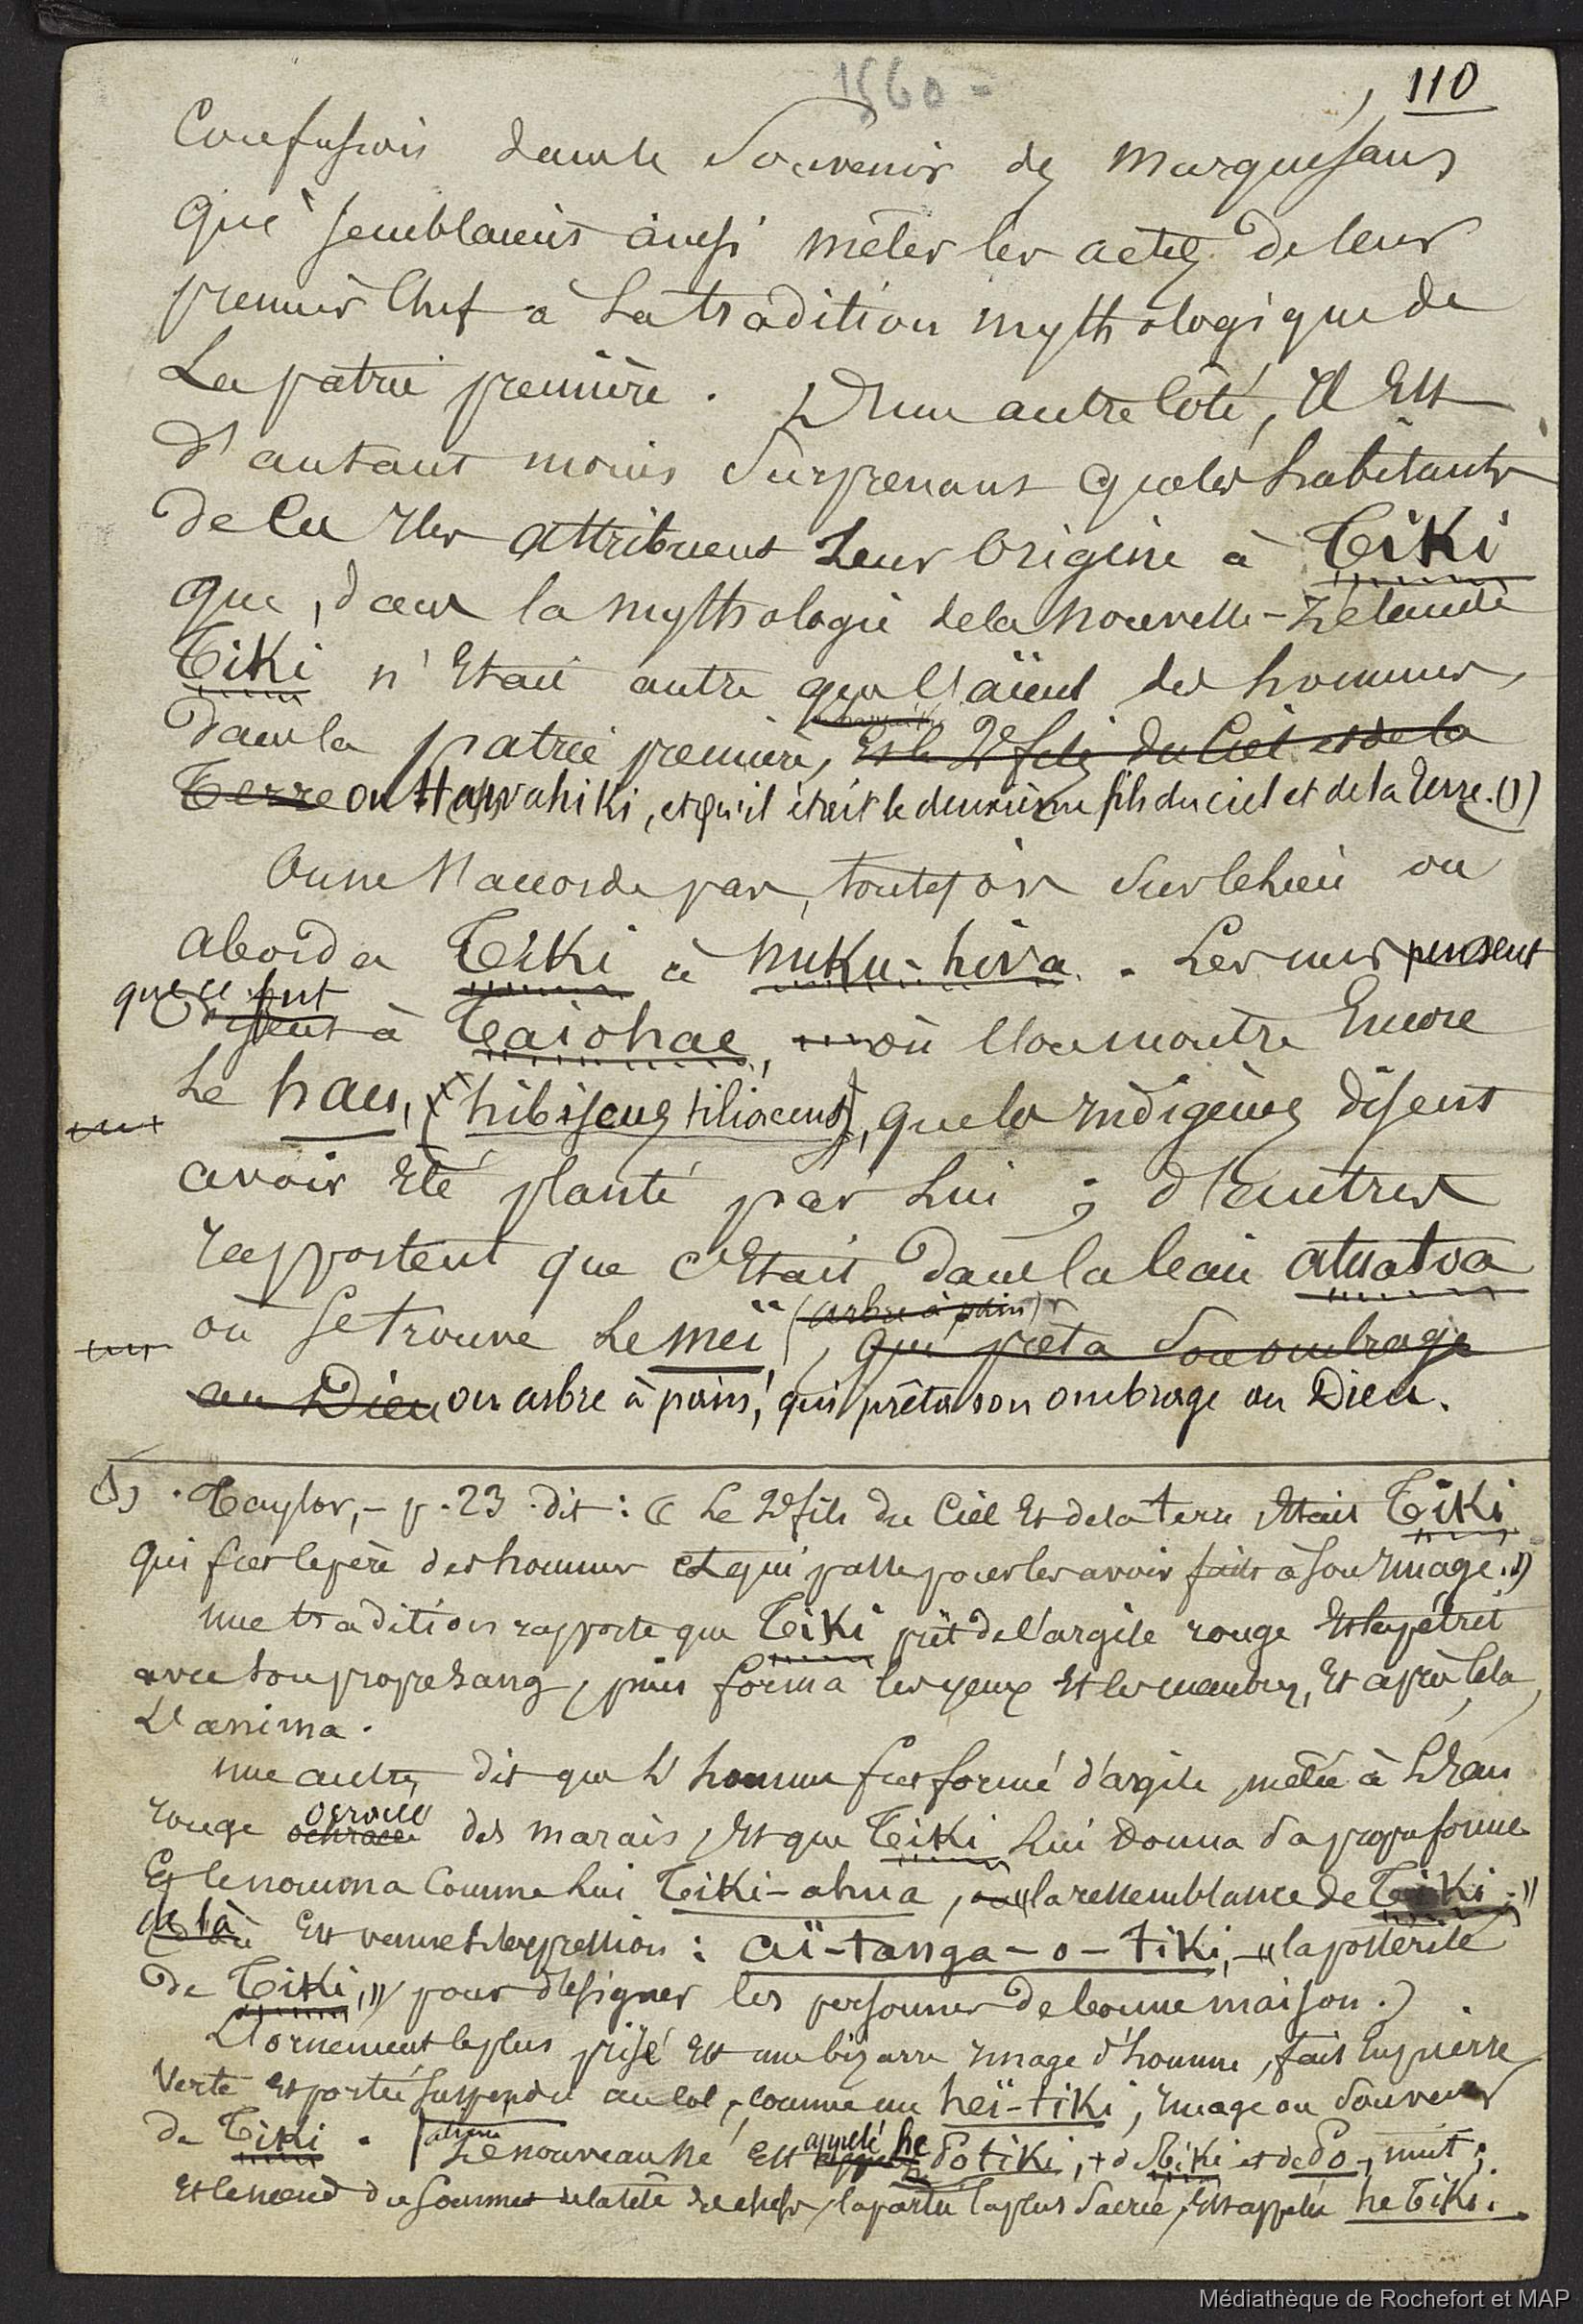 1560 =
110
Confusion dans le Souvenir des Marquesans
qui semblaient ainsi mêler les actes de leur
premier Chef à la tradition mythologique de
La patrie première. D'un autre Coté, Il Est
d'autant moins Surprenant que les habitants
de Ces Iles attribuent Leur Origine à Tiki
que, dans la mythologie de la Nouvelle-Zélande
Tiki n'Etait autre que l'aïeul des hommes,
dans la patrie première, Et le 2e fils du Ciel et de la
Terre ou Hawahiki, et qu'il était le deuxième fils du ciel et de la Terre. (1)
On ne S'accorde pas, toutefois Sur le lieu où
aborda Tiki à Nuku-hiva. Les uns pensent
que ce fut
disent à Taiohae, où l'on montre Encore
Le hau, (hibiscus tiliaceus), que les Indigènes disent
avoir Eté planté par Lui ; d'autres
rapportent que c'Etait dans la baie atuatua
(arbre à pain)
où Se trouve Le meï, qui prêta Son ombrage
au Dieu ou arbre à pain, qui prêta son ombrage au Dieu.
(1) . Taylor, - p. 23 . dit : « Le 2e fils du Ciel Et de la terre Etait Tiki
qui fut le père des hommes Et qui passe pour les avoir faits à Son Image. »
Une tradition rapporte que Tiki prit de l'argile rouge Et la pétrit
avec Son propre Sang, puis forma les yeux Et les membres, Et après Cela,
L'anima.
Une autre dit que l'homme fut formé d'argile, mêlée à L'Eau
ocracée
rouge ochracée des marais, Et que Tiki Lui Donna Sa propre forme
Et le nomma Comme Lui Tiki-ahua, « la ressemblance de Tiki. »
de là
Est venue l'Expression : aï-tanga-o-tiki, - « la postérité
de Tiki, » pour désigner les personnes de bonne maison.)
L'ornement le plus prisé Est une bizarre Image d'homme, fait En pierre
Verte Et portée Suspendue au Col, comme un heï-tiki, Image ou Souvenir
de Tiki. Le nouveau né Est appelé he Potiki, de Tiki et de Po, nuit ;
Et le nœud du Sommet de la tête des chefs, la partie la plus Sacrée, Est appelée he Tiki.
Médiathèque de Rochefort et MAP